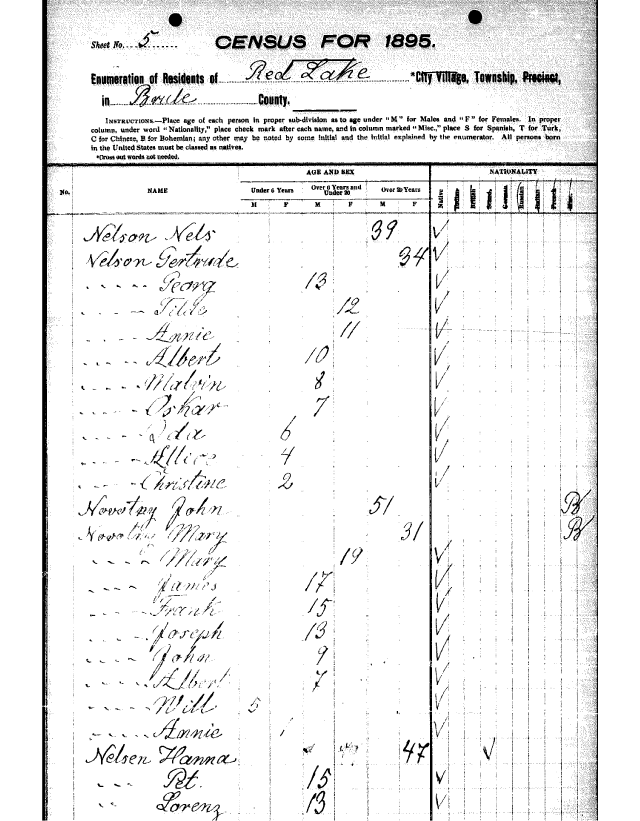 Sheet No. 5
CENSUS FOR 1895.
Enumeration of Residents of Red Lake *City Village, Township, Precinct,
in Brule County.
INSTRUCTIONS.—Place age of each person in proper sub-division as to age under "M" for Males and "F" for Females. In proper
column, under word "Nationality," place check mark after each name, and in column marked "Misc.," place S for Spanish, T for Turk,
C for Chinese, B for Bohemian; any other may be noted by some initial and the initial explained by the enumerator. All persons born
in the United States must be classed as natives.
*Cross out words not needed.
AGE AND SEX NATIONALITY
No. NAME Under 6 Years Over 6 Years and Under 20 Over 20 Years Native Indian British Scand. German Russian Italian French Misc.
M F M F M F
Nelson Nels 39 ✓
Nelson Gertrude 34 ✓
" Georg 13 ✓
" Tilde 12 ✓
" Annie 11 ✓
" Albert 10 ✓
" Malvin 8 ✓
" Oskar 7 ✓
" Ida 6 ✓
" Allice 4 ✓
" Christine 2 ✓
Novotny John 51 B
Novotny Mary 31 B
" Mary 19 ✓
" James 17 ✓
" Frank 15 ✓
" Joseph 13 ✓
" John 9 ✓
" Albert 7 ✓
" Will 5 ✓
" Annie 1 ✓
Nelsen Hanna 47 ✓
" Pet. 15 ✓
" Lorenz 13 ✓